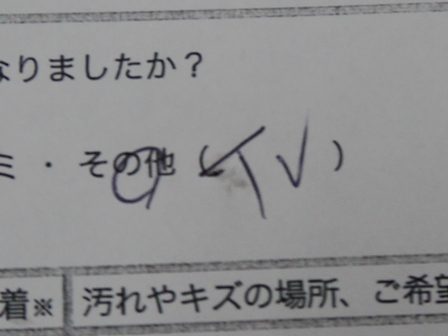 なりましたか？
ミ・その他（TV）
着※ 汚れやキズの場所、ご希望